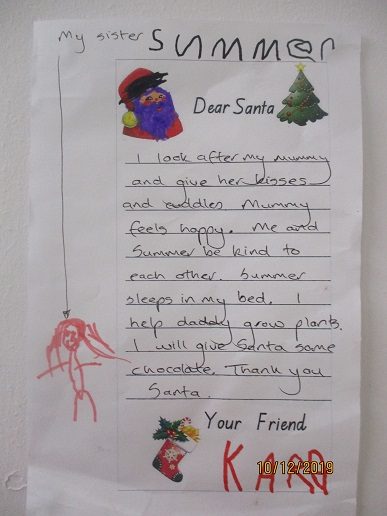 My sister SUMMER
Dear Santa
I look after my mummy
and give her kisses
and cuddles. Mummy
feels happy. Me and
Summer be kind to
each other. Summer
sleeps in my bed. I
help daddy grow plants.
I will give Santa some
chocolate. Thank you
Santa.
Your Friend
KARO
10/12/2019